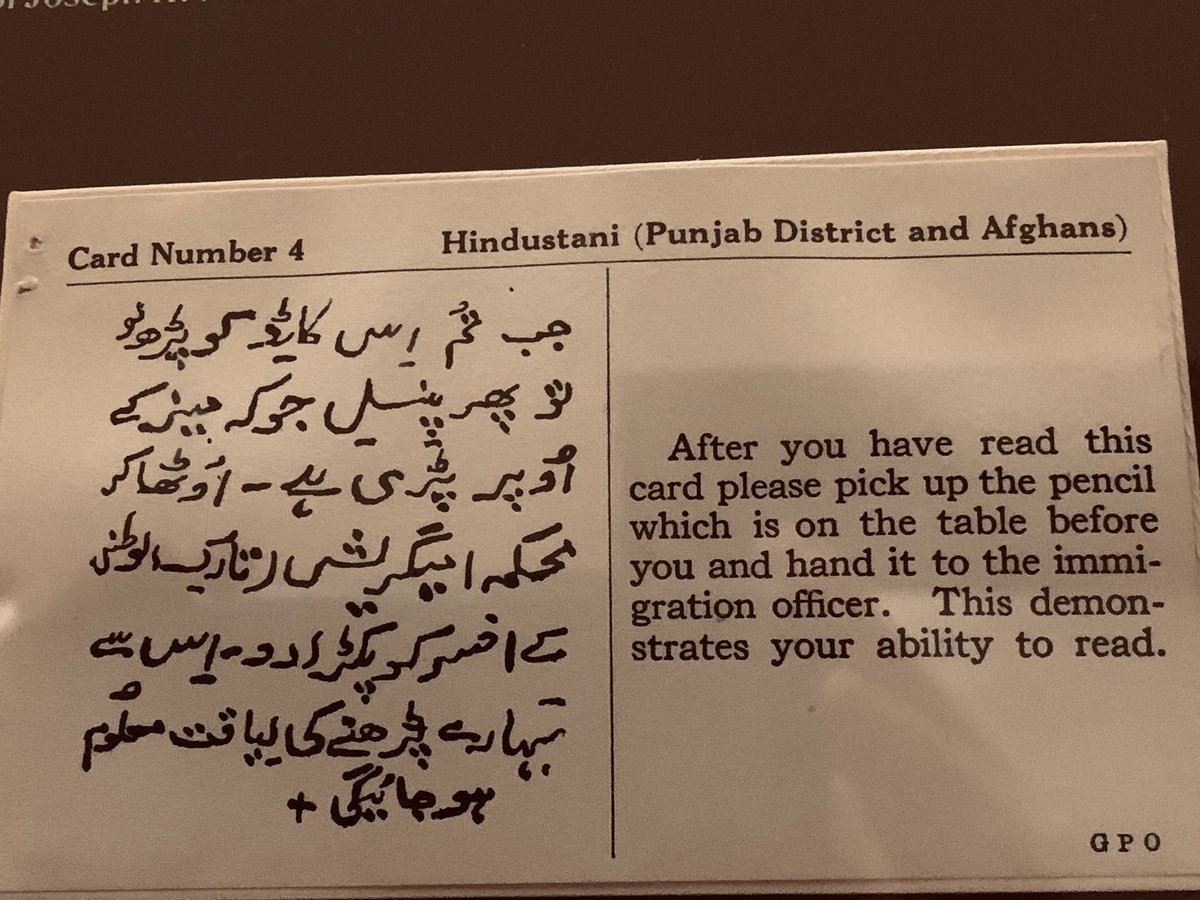 Card Number 4
Hindustani (Punjab District and Afghans)
جب تُم اِس کارڈ کو پڑھ لو
تو پھر پنسل جو کہ میز کے
اُوپر پڑی ہے - اُوٹھا کر
محکمہ امیگریشن (تارک الوطنی
کے افسر کو پکڑا دو - اِس سے
تمہارے پڑھنے کی لیاقت معلُوم
ہو جائیگی +
After you have read this
card please pick up the pencil
which is on the table before
you and hand it to the immi-
gration officer. This demon-
strates your ability to read.
GPO